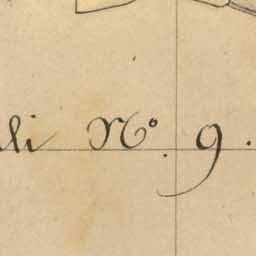 li Nº. 9.